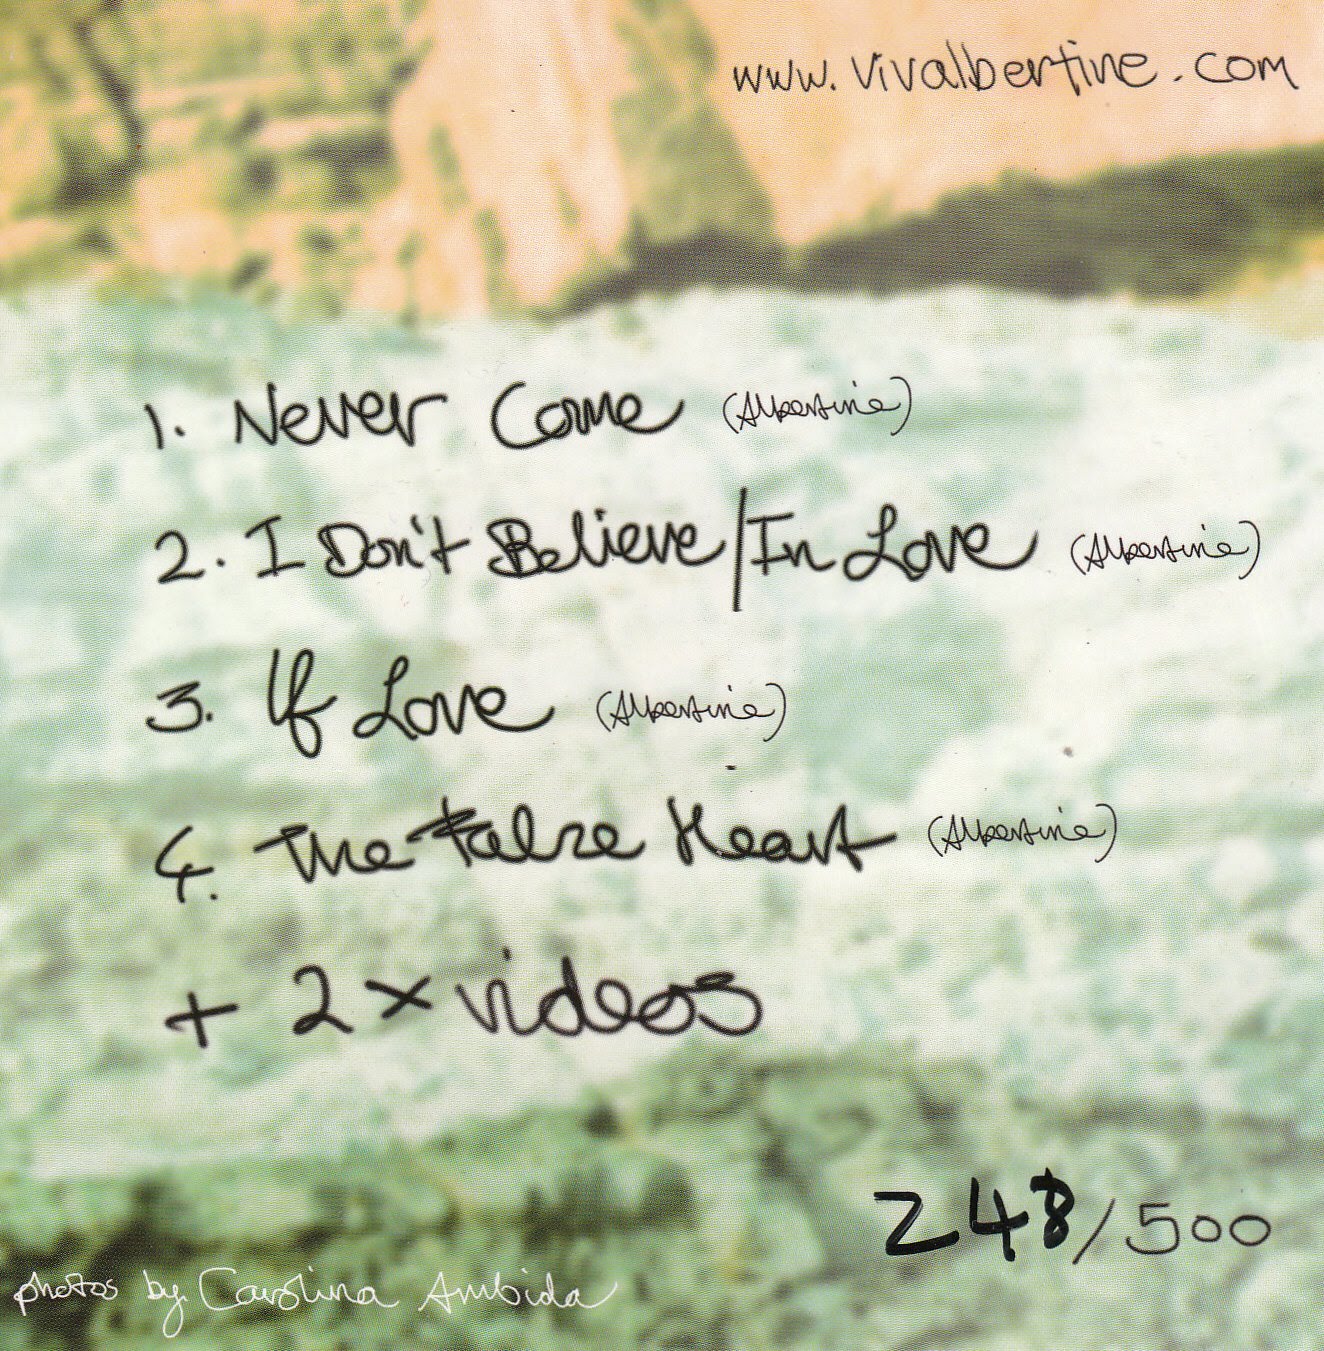 www.vivalbertine.com
1. Never Come (Albertine)
2. I Don't Believe/In Love (Albertine)
3. If Love (Albertine)
4. The False Heart (Albertine)
+ 2 x videos
248/500
photos by Carolina Ambida